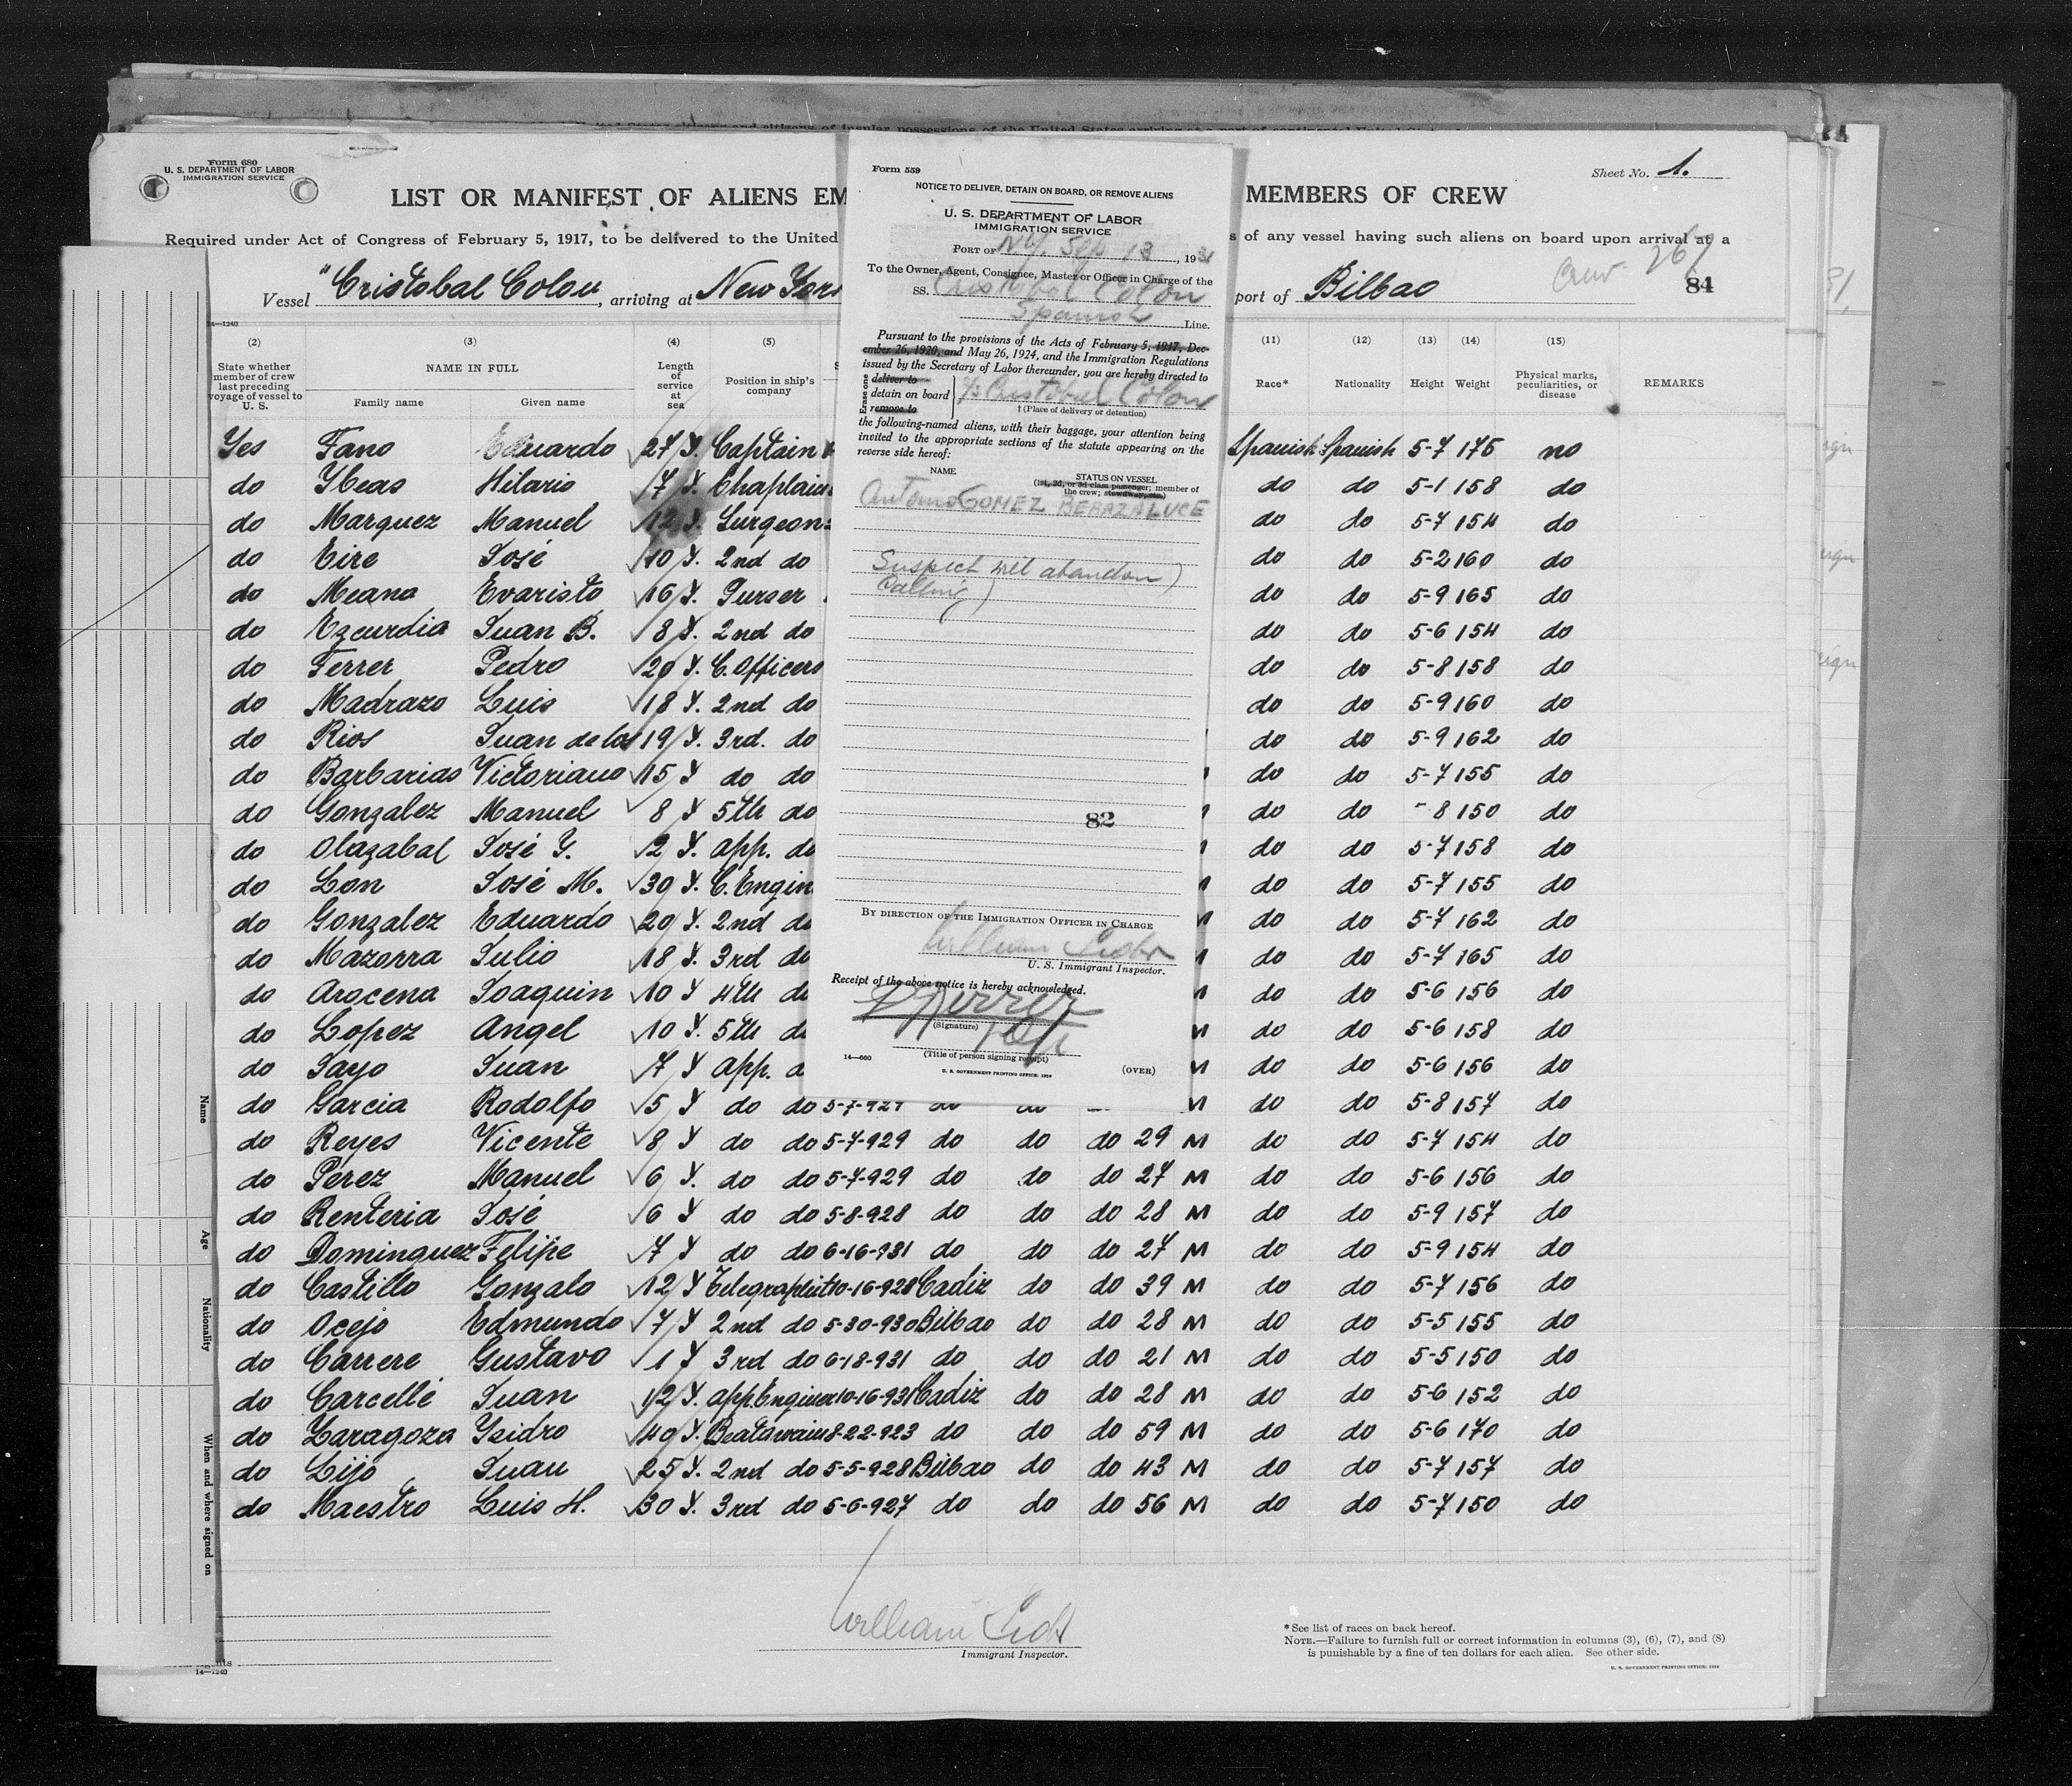 Form 680
U. S. DEPARTMENT OF LABOR
IMMIGRATION SERVICE
Sheet No. 1.
LIST OR MANIFEST OF ALIENS EM
MEMBERS OF CREW
Required under Act of Congress of February 5, 1917, to be delivered to the United
s of any vessel having such aliens on board upon arrival at a
Vessel "Cristobal Colon, arriving at New York
port of Bilbao
Crew 267
84
14—1240
(2) (3) (4) (5) (11) (12) (13) (14) (15)
State whether member of crew last preceding voyage of vessel to U. S.
NAME IN FULL
Family name Given name
Length of service at sea
Position in ship's company
Race* Nationality Height Weight
Physical marks, peculiarities, or disease
REMARKS
Yes Fano Eduardo 27 Y. Captain Spanish Spanish 5-7 175 no
do Ybeas Hilario 7 Y. Chaplain do do 5-1 158 do
do Marquez Manuel 12 Y. Surgeon do do 5-7 154 do
do Eire José 10 Y. 2nd do do do 5-2 160 do
do Meana Evaristo 16 Y. Purser do do 5-9 165 do
do Ezcurdia Juan B. 8 Y. 2nd do do do 5-6 154 do
do Ferrer Pedro 20 Y. C. Officers do do 5-8 158 do
do Madrazo Luis 18 Y. 2nd do do do 5-9 160 do
do Rios Juan de los 19 Y. 3rd. do do do 5-9 162 do
do Barbarias Victoriano 15 Y do do do do 5-7 155 do
do Gonzalez Manuel 8 Y 5th do do do - 8 150 do
do Olazabal José Y. 2 Y. app. do do do 5-7 158 do
do Lon José M. 30 Y. C. Engin do do 5-7 155 do
do Gonzalez Eduardo 20 Y. 2nd do do do 5-7 162 do
do Mazorra Julio 18 Y. 3rd do do do 5-7 165 do
do Arocena Joaquin 10 Y 4th do do do 5-6 156 do
do Lopez Angel 10 Y. 5th do do do 5-6 158 do
do Sayo Juan 7 Y app. d do do 5-6 156 do
do Garcia Rodolfo 5 Y do do 5-7-929 do do M do do 5-8 157 do
do Reyes Vicente 8 Y do do 5-7-929 do do do 29 M do do 5-7 154 do
do Perez Manuel 6 Y. do do 5-7-929 do do do 27 M do do 5-6 156 do
do Renteria José 6 Y do do 5-8-928 do do do 28 M do do 5-9 157 do
do Dominguez Felipe 7 Y do do 6-16-931 do do do 27 M do do 5-9 154 do
do Castillo Gonzalo 12 Y Telegraphist 10-16-928 Cadiz do do 39 M do do 5-7 156 do
do Ocejo Edmundo 7 Y 2nd do 5-30-930 Bilbao do do 28 M do do 5-5 155 do
do Carrere Gustavo 1 Y 3rd do 6-18-931 do do do 21 M do do 5-5 150 do
do Carcellé Juan 12 Y. app. Engineer 10-16-931 Cadiz do do 28 M do do 5-6 152 do
do Zaragoza Ysidro 40 Y. Boatswain 8-22-923 do do do 59 M do do 5-6 170 do
do Lijo Juan 25 Y. 2nd do 5-5-928 Bilbao do do 43 M do do 5-7 157 do
do Maestro Luis H. 30 Y. 3rd do 5-6-927 do do do 56 M do do 5-7 150 do
Form 559
NOTICE TO DELIVER, DETAIN ON BOARD, OR REMOVE ALIENS
U. S. DEPARTMENT OF LABOR
IMMIGRATION SERVICE
PORT OF N.Y. Sep 13, 1931
To the Owner, Agent, Consignee, Master or Officer in Charge of the
SS. Cristobal Colon
Spanish Line.
Pursuant to the provisions of the Acts of February 5, 1917, Dec-
ember 26, 1920, and May 26, 1924, and the Immigration Regulations
issued by the Secretary of Labor thereunder, you are hereby directed to
Erase one
deliver to
detain on board
remove to
Cristobal Colon
† (Place of delivery or detention)
the following-named aliens, with their baggage, your attention being
invited to the appropriate sections of the statute appearing on the
reverse side hereof:
NAME
STATUS ON VESSEL
(1st, 2d, or 3d class passenger; member of
the crew; stowaway, etc.)
Antonio GOMEZ BERAZALUCE
Suspect will abandon
Calling
82
BY DIRECTION OF THE IMMIGRATION OFFICER IN CHARGE
U. S. Immigrant Inspector.
Receipt of the above notice is hereby acknowledged.
(Signature)
(Title of person signing receipt)
14—660
(OVER)
U. S. GOVERNMENT PRINTING OFFICE: 1929
Name
Age
Nationality
When and where signed on
William
Immigrant Inspector.
* See list of races on back hereof.
NOTE.—Failure to furnish full or correct information in columns (3), (6), (7), and (8)
is punishable by a fine of ten dollars for each alien. See other side.
U. S. GOVERNMENT PRINTING OFFICE: 1929
14—1240